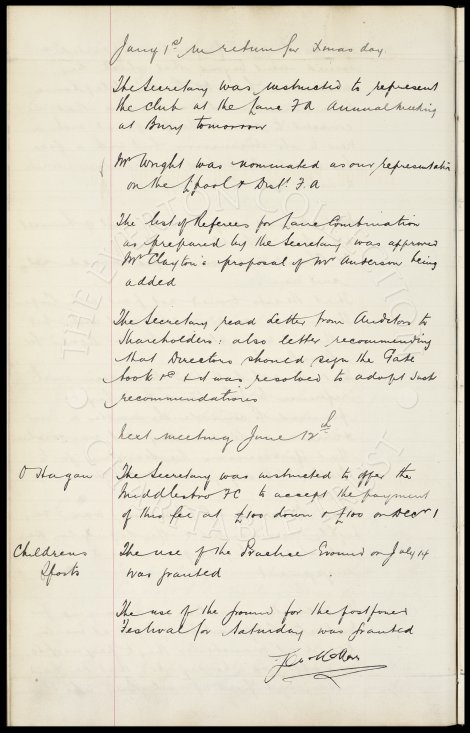 Jany 1st in return for Xmas day.
The Secretary was instructed to represent
the club at the Lanc F A Annual Meeting
at Bury tomorrow
Mr Wright was nominated as our representative
on the Lpool & Dist. F. A
The list of Referees for Lanc Combination
as prepared by the Secretary was approved
Mr Clayton's proposal of Mr Anderson being
added
The Secretary read Letter from Auditors to
Shareholders: also letter recommending
that Directors should sign the Gate
book &c & it was resolved to adopt such
recommendations
Next meeting June 12th
O'Hagan The Secretary was instructed to offer the
Middlesbro FC to accept the payment
of this fee at £100 down & £100 on Decr 1
Childrens The use of the Practise Ground on July 14
Sports was granted
The use of the ground for the postponed
Festival for Saturday was granted